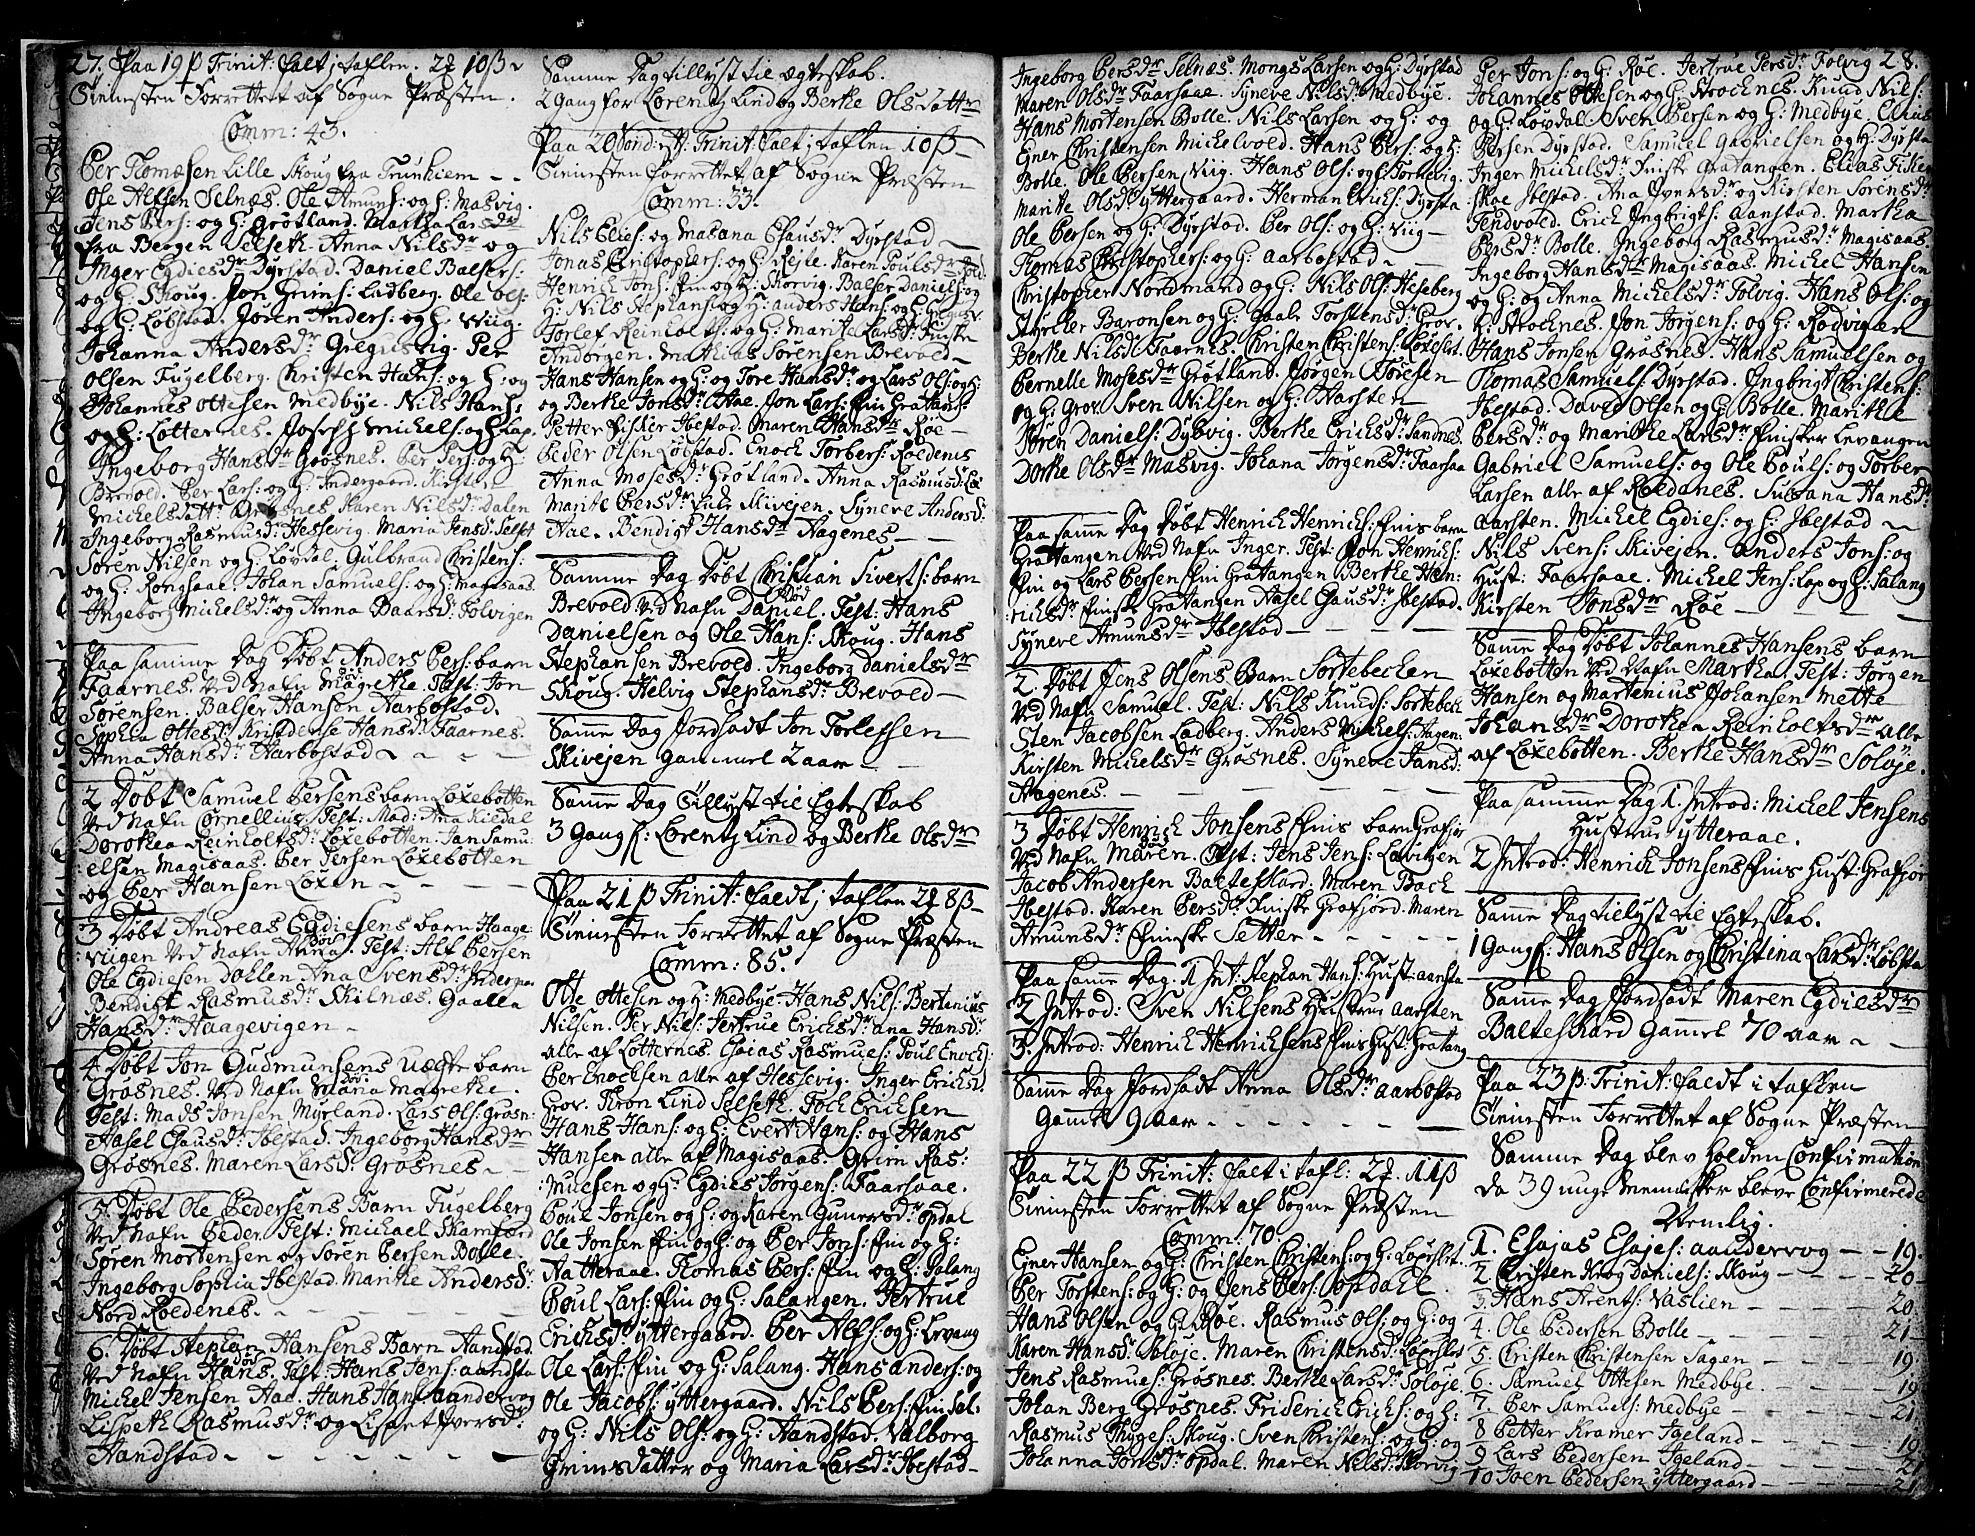 27. Paa 19 p Trinit: falt j taflen. 2 10 ß
Tienesten Forrettet af Sogne Præsten.
Comm: 43.
Per Thomæsen Lille Skoug fra Trunhiem - -
Ole Alfsen Selnæs. Ole Amuns: og H: Masvig.
Jens Pers: og H: Grøtland. Martha Larsdr
fra Bergen Selseth. Anna Nilsdr og
Inger Egdiesdr Dyrstad. Daniel Balsers:
og H: Skoug. Jon Grims: Ladberg. Ole Ols:
og H: Løbstad. Joren Anders: og H: Wiig.
Johanna Andersdr Gregusvig. Per
Olsen Fugelberg. Christen Hans: og H: og
Johannes Ottesen Medbye. Nils Hans:
og H: Lotternes. Joseph Michels: og H: Lap.
Ingeborg Hansdr Grøsnes. Per Pers: og H:
Brevold. Per Lars: og H: Indergaard. Kirsten
Michelsdattr Grøsnes. Karen Nilsdr Dalen
Ingeborg Rasmusdr Hessevig. Maria Jensdr Selset
Søren Nilsen og H: Løvdal. Gulbrand Christens:
og H: Rongsaae. Johan Samuels: og H: Magisaas.
Ingeborg Michelsdr og Anna Baarsdr Folvigen
Paa samme Dag Døbt Anders Pers: barn
Faarnes. Ved Nafn Magrethe. Test: Jon
Sørensen. Balser Hanson Aarbostad.
Sophia Ottesdr Kristdense Hansdr Faarnes.
Anna Hansdr Aarbostad
2 Døbt Samuel Persens barn Loxebotten
Ved Nafn Cornellius. Test: Mad: Ana Kiedal
Dorothea Reinholtsdr Loxebotten. Jan Samu:
elsen Magisaas. Per Persen Loxebotten
og Per Hansen Loxen
3 Døbt Andreas Egdiesens barn Haage:
viigen Ved Nafn Anna. Test: Alf Persen
Ole Egdiesen Dollen. Ana Svensdr
Bendigt Rasmusdr Skilnæs. Gaalla
Hansdr Haagevigen
4 Døbt Jon Gudmunsens uægte barn
Grøsnes. Ved Nafn Maria Magrethe.
Test: Mads Jonsen Myrland. Lars Ols: Grøsn:
Aasel Esausdr Ibestad. Ingeborg Hansdr
Grøsnes. Maren Larsdr Grøsnes
5. Døbt Ole Pedersens Barn Fugelberg
Ved Nafn Peder. Test: Michael Skamferd
Søren Mortensen og Søren Persen Bolle.
Ingeborg Sophia Ibestad. Marithe Andersdr:
Nord Roedenes.
6. Døbt Stephen Hansens Barn Aandstad.
Ved Nafn Hans. Test: Hans Jens: Aandsta
Michel Jensen Aae. Hans Hans: Aandervog
Lispeth Rasmusdr og Lispet Iversdr
Aandstad
Samme Dag tillyst til Ægteskab.
2 Gang for Lorentz Lind og Berthe Olsdattr
Paa 20 Sond: p Trinit: falt j taflen 10 ß
Tienesten Forrettet af Sogne Præsten
Comm: 33.
Nils Elies: og Masana Esausdr Dyrstad
Jonas Christophers: og H: Rejle. Karen Poulsdr Rold
Henrich Jons: Fin og H: Skorvig. Balser Daniels: og
H: Nils Stephans: og H: Anders Hans: og H: Gregusv
Torlef Reinholts: og H: Marit Larsdr Finske
Andorgen. Mathias Sørensen Brevold
Hans Hansen og H: og Tore Hansdr og Lars Ols: og H:
og Berthe Jonsdr Aae. Jon Lars: Fin Gratang:
Petter Fisker Ibestad. Maren Hansdr Roe
Peder Olsen Løbstad. Enoch Torbers: Roedenis
Anna Mosesdr Grøtland. Anna Rasmusdr
Marite Persdr Skivejen. Syneve Andersdr:
Aae. Bendigt Hansdr Aagenes
Samme Dag Døbt Christian Siverts: barn
Brevold Ved Nafn Daniel. Test: Hans
Danielsen og Ole Hans: Skoug. Hans
Stephansen Brevold. Ingeborg Danielsdr
Skoug. Helvig Stephansdr Brevold
Samme Dag Jordsadt Jon Torlefsen
Skivejen Gammel 2 aar
Samme Dag Tillyst til Egteskab
3 Gang f: Lorentz Lind og Berthe Olsdr
Paa 21 p Trinit: faldt j taflen 2 8 ß
Tienesten Forrettet af Sogne Præsten
Comm: 85.
Otte Ottesen og H: Medbye. Hans Nils: Bertenius
Nilsen. Per Nils: Jertrue Erichsdr Ana Hansdr
alle af Lotternes. Esaias Rasmues: Poul Enochs:
Per Enochsen alle af Hessevig. Inger Erichsdr.
Grov. Tiron Lind Selseth. Fock Erichsen
Hans Hans: og H: Evert Hans: og Hans
Hansen alle af Magisaas. Grim Ras:
:muesen og H: Egdies Jørgens: Faarsaae.
Poul Jonsen og H: og Karen Gunerodr Opdal
Ole Jonsen Fin og H: og Per Jons: Fin og H:
Natteraae. Thomas Pers: Fin og H: Salang
Poul Lars: Fin og H: Salangen. Jertrue
Erichsdr Yttergaard. Per Alfs: og H: Levang
Ole Lars: Fin og H: Salang. Hans Anders: og
Ole Jacobs: Yttergaard. Nils Pers: Fin Sal.
og H: Nils Ols: og H: Aandstad. Valborg
Grimsdatter og Maria Larsdr Ibestad
Ingeborg Persdr Selnes. Mons Larsen og H: Dyrstad
Maren Olsdr Faarsaae. Syneve Nilsdr Medbye.
Hans Mortensen Bolle. Nils Larsen og H: og
Ejner Christensen Michelvold. Hans Pers: og H:
Bolle. Ole Persen Wiig. Hans Ols: og H: Tortevig.
Marite Olsdr Yttergaard. Herman Erichs: Dyrsta
Ole Persen og H: Dyrstad. Per Ols: og H: Wiig
Thomas Christophers: og H: Aarbostad
Christopher Nordmand og H: Nils Ols: Heseberg
Styrcher Baronsen og H: Gaal. Torstensdr Grov.
Berthe Nilsdr Faarnes. Christen Christens: Loxeslet.
Pernelle Mosesdr Grøtland. Jørgen Toresen
og H: Grov. Sven Nilsen og H: Aarsten
Joren Daniels: Dybvig. Berthe Erichsdr Sandnes.
Dorthe Olsdr Masvig. Johana Jorgensdr Faarsaa
Paa samme Dag Døbt Henrich Henrichs: Finis barn
Gratangen Ved Nafn Inger. Test: Jon Henrichs:
Fin og Lars Persen Fin Gratangen Berthe Hen:
:richsdr Finske Gratangen Aasel Esausdr Ibestad.
Syneve Amunsdr Ibestad
2. Døbt Jens Olsens Barn Sortebechen
Ved Nafn Samuel. Test: Nils Knuds: Sortebech
Sten Jacobsen Ladberg. Anders Michels: Aagen:
Kirsten Michelsdr Grøsnes. Syneve Jansdr:
Aagenes.
3 Døbt Henrich Jonsens Finis barn Grafjor
Ved Nafn Maren. Test: Jens Jens: Lavigen
Jacob Andersen Balteskard. Maren Bach
Ibestad. Karen Persdr Finske Grafjord. Maren
Amunsdr Finske Setter
Paa samme Dag. 1 Int: Stephan Hans: Hust: Aansta
2 Introd: Sven Nilsens Hustrue Aarsten
3. Introd: Henrich Henrichsens Finis Hust: Gratang
Samme Dag Jordsadt Anna Olsdr Aarbostad
Gamel 9 aar
Paa 22 p Trinit: falt i tafl: 2 11 ß
Tienesten Forrettet af Sogne Præsten
Comm: 70.
Ejner Hansen og H: Christen Christens: og H: Loxeslet.
Per Torstens: og H: og Jens Pers: Opdahl.
Hans Olsen og H: Roe. Rasmus Ols: og H: og
Karen Hansdr Soløje. Maren Christensdr Loxeslet
Jens Rasmues: Grøsnes. Berthe Larsdr Soløje.
Johan Berg Grøsnes. Friderich Erichs: og H:
Rasmus Thyges: Skoug. Sven Christens: og H: og
Johanna Jonsdr Opdal. Maren Nilsdr Skorvig
Per Jons: og H: Roe. Jertrue Persdr Folvig 28.
Johannes Ottesen og H: Strochnes. Knud Nils:
og H: Lovdal. Sven Persen og H: Medbye Elius
Persen Dyrstad. Samuel Gabrielsen og H: Dyrsta
Inger Michelsdr Finske Gratangen. Elias Fisker
Skoe Ibestad. Ana Joensdr og Kirsten Sorensdr
Tendvold. Erich Ingbrigts: Aanstad. Martha
Persdr Bolle. Ingeborg Rasmusdr Magisaas
Ingeborg Hansdr Magisaas. Michel Hansen
og H: og Anna Michelsdr Folvig. Hans Ols: og
H: Strochnes. Jon Jørgens: og H: Rodvigen
Hans Jonsen Grøsnes. Hans Samuelsen og
Thomas Samuels: Dyrstad. Ingbrigt Christens:
Ibestad. David Olsen og H: Bolle. Marithe
Persdr og Marithe Larsdr Finsker Levangen
Gabriel Samuels: og Ole Pouls: og Torber
Larsen alle af Roedenes. Susana Hansdr
Aarsten. Michel Egdies: og H: Ibestad
Nils Svens: Skivejen. Anders Jons: og
Hust: Faarsaae. Michel Jens: Lap og H: Salang
Kirsten Jonsdr Roe
Samme Dag Døbt Johannes Hansens barn
Loxebotten Ved Nafn Martha. Test: Jørgen
Hansen og Martenius Johansen Mette
Johansdr Dorothea Reinholtsdr alle
af Loxebotten. Berthe Hansdr Soløje.
Paa samme Dag 1. Introd: Michel Jensens
Hustrue Ytteraae.
2 Introd: Henrich Jonsens Finis Hust: Grafjor
Samme Dag tillyst til Egteskab.
1 Gang f: Hans Olsen og Christina Larsdr Løbsta
Samme Dag Jordsadt Maren Egdiesdr
Balteskard Gammel 70 aar
Paa 23 p: Trinit: faldt i taflen
Tienesten Forrettet af Sogne Præsten
Samme Dag blev holden Confirmation
da 39 unge Mennisker bleve Confirmerede
Nemlig.
1. Esajas Esajes: Aandervog - - 19.
2 Christen Krog Daniels: Skoug - - 20
3. Hans Arents: Vaslien - - 20.
4. Ole Pedersen Bolle - - 21
5. Christen Christensen Sagen - - 19.
6. Samuel Ottesen Medbye - - 19
7. Per Samuels: Medbye - - 21
8 Petter Kramer Igeland - - 19.
9 Lars Pedersen Igeland - - 21
10 Joen Pedersen Yttergaard - - 21